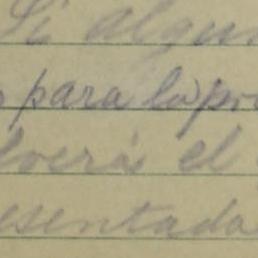 Si algun
para la pro
verá el
esentada